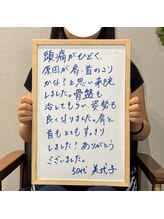 頭痛がひどく、
原因が肩・首のこり
かな？と思い来院
しました。骨盤も
治してもらい、姿勢も
良くなりました。肩と
首もとてもすっきり
しました！ありがとう
ございました。
50代 美代子